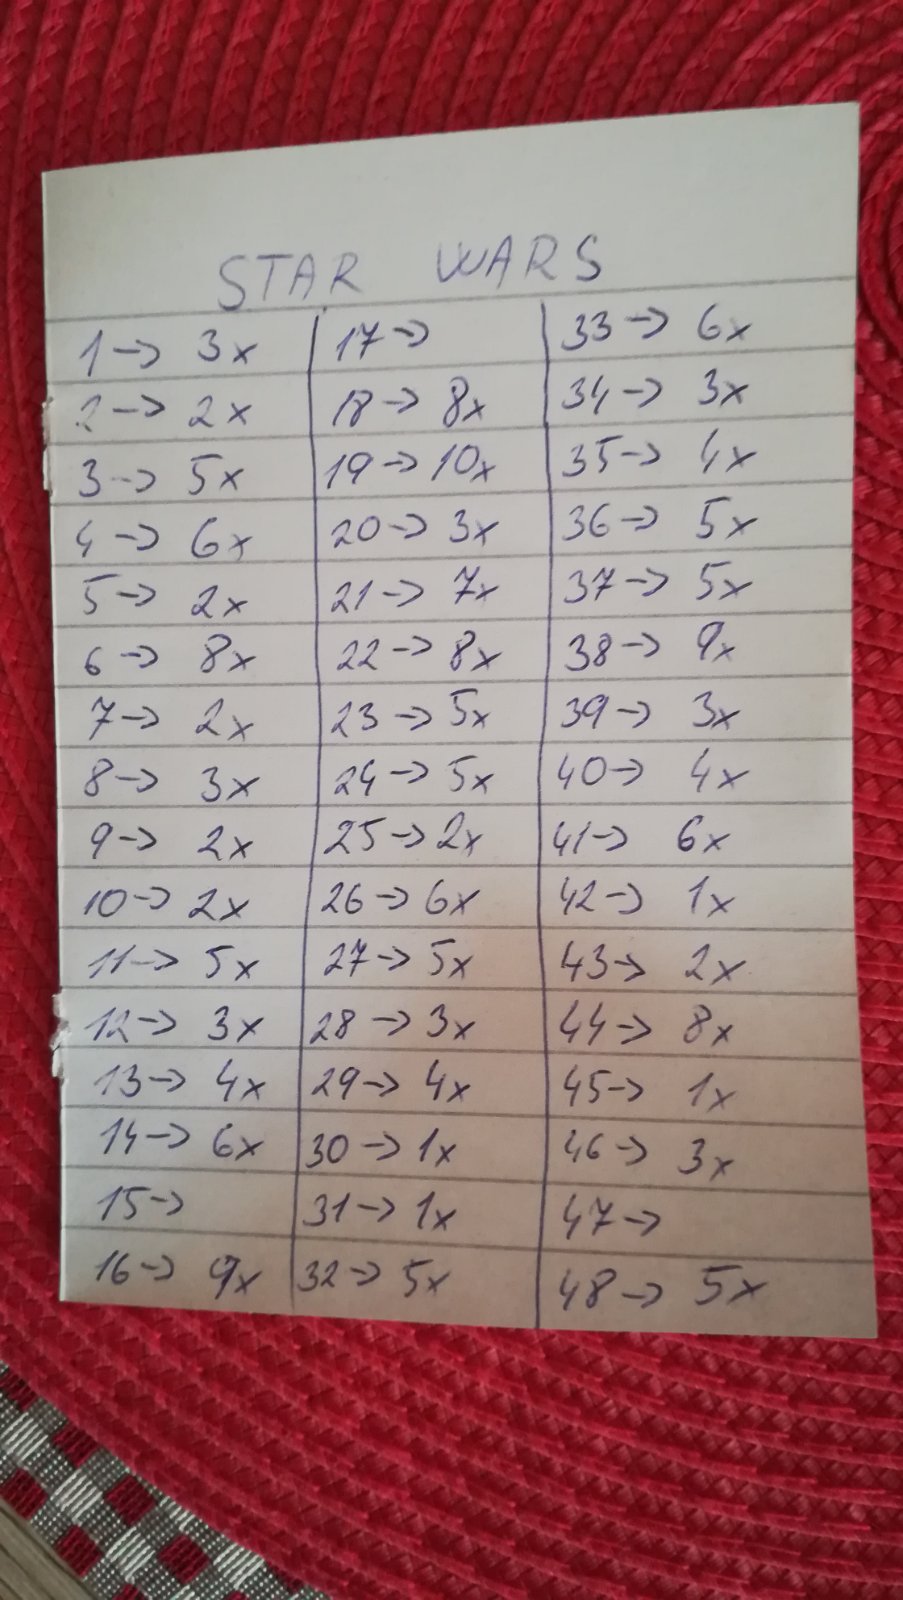 STAR WARS
1 → 3x
2 → 2x
3 → 5x
4 → 6x
5 → 2x
6 → 8x
7 → 2x
8 → 3x
9 → 2x
10 → 2x
11 → 5x
12 → 3x
13 → 4x
14 → 6x
15 →
16 → 9x
17 →
18 → 8x
19 → 10x
20 → 3x
21 → 7x
22 → 8x
23 → 5x
24 → 5x
25 → 2x
26 → 6x
27 → 5x
28 → 3x
29 → 4x
30 → 1x
31 → 1x
32 → 5x
33 → 6x
34 → 3x
35 → 4x
36 → 5x
37 → 5x
38 → 9x
39 → 3x
40 → 4x
41 → 6x
42 → 1x
43 → 2x
44 → 8x
45 → 1x
46 → 3x
47 →
48 → 5x